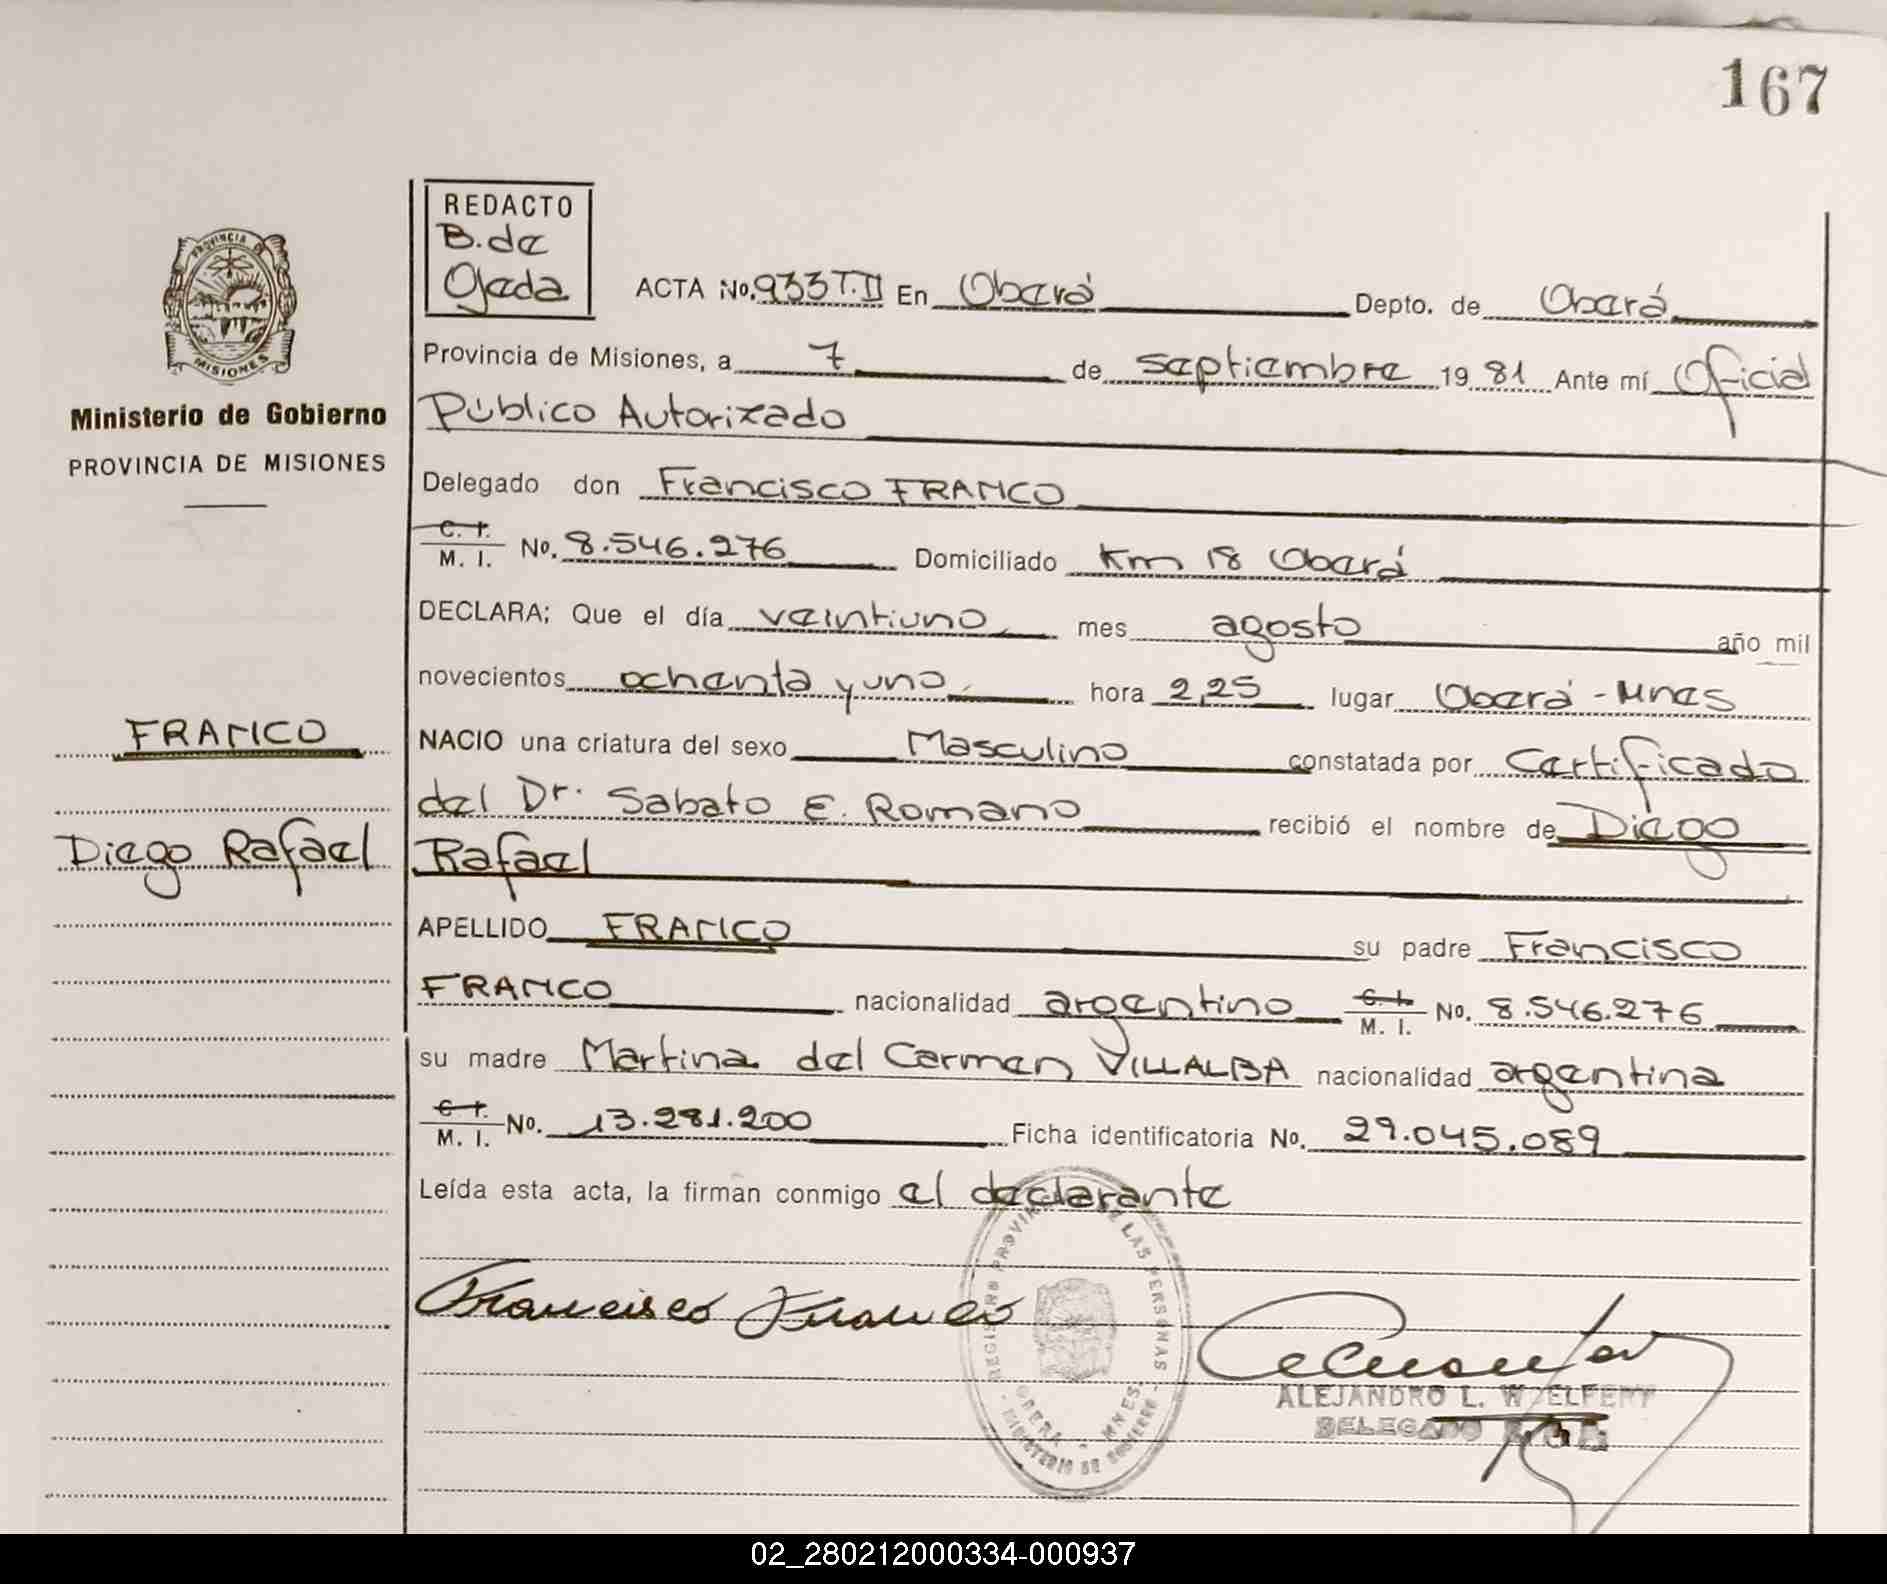 167
REDACTO
B. de
Ojeda
PROVINCIA DE
MISIONES
Ministerio de Gobierno
PROVINCIA DE MISIONES
ACTA No. 933 T.II En Oberá Depto. de Oberá
Provincia de Misiones, a 7 de septiembre 19 81 Ante mí Oficial
Público Autorizado
Delegado don Francisco FRANCO
C. I. M. I. No. 8.546.276 Domiciliado Km 18 Oberá
DECLARA; Que el día veintiuno mes agosto año mil
novecientos ochenta y uno hora 2,25 lugar Oberá - Mnes
FRANCO
NACIO una criatura del sexo Masculino constatada por Certificado
del Dr. Sabato E. Romano recibió el nombre de Diego
Diego Rafael
Rafael
APELLIDO FRANCO su padre Francisco
FRANCO nacionalidad argentino C. I. M. I. No. 8.546.276
su madre Martina del Carmen VILLALBA nacionalidad argentina
C. I. M. I. No. 13.281.200 Ficha identificatoria No. 29.045.089
Leída esta acta, la firman conmigo el declarante
Francisco Franco
REGISTRO PROVINCIAL DE LAS PERSONAS
OBERA - MNES.
MINISTERIO DE GOBIERNO
ALEJANDRO L.
DELEGADO
02_280212000334-000937